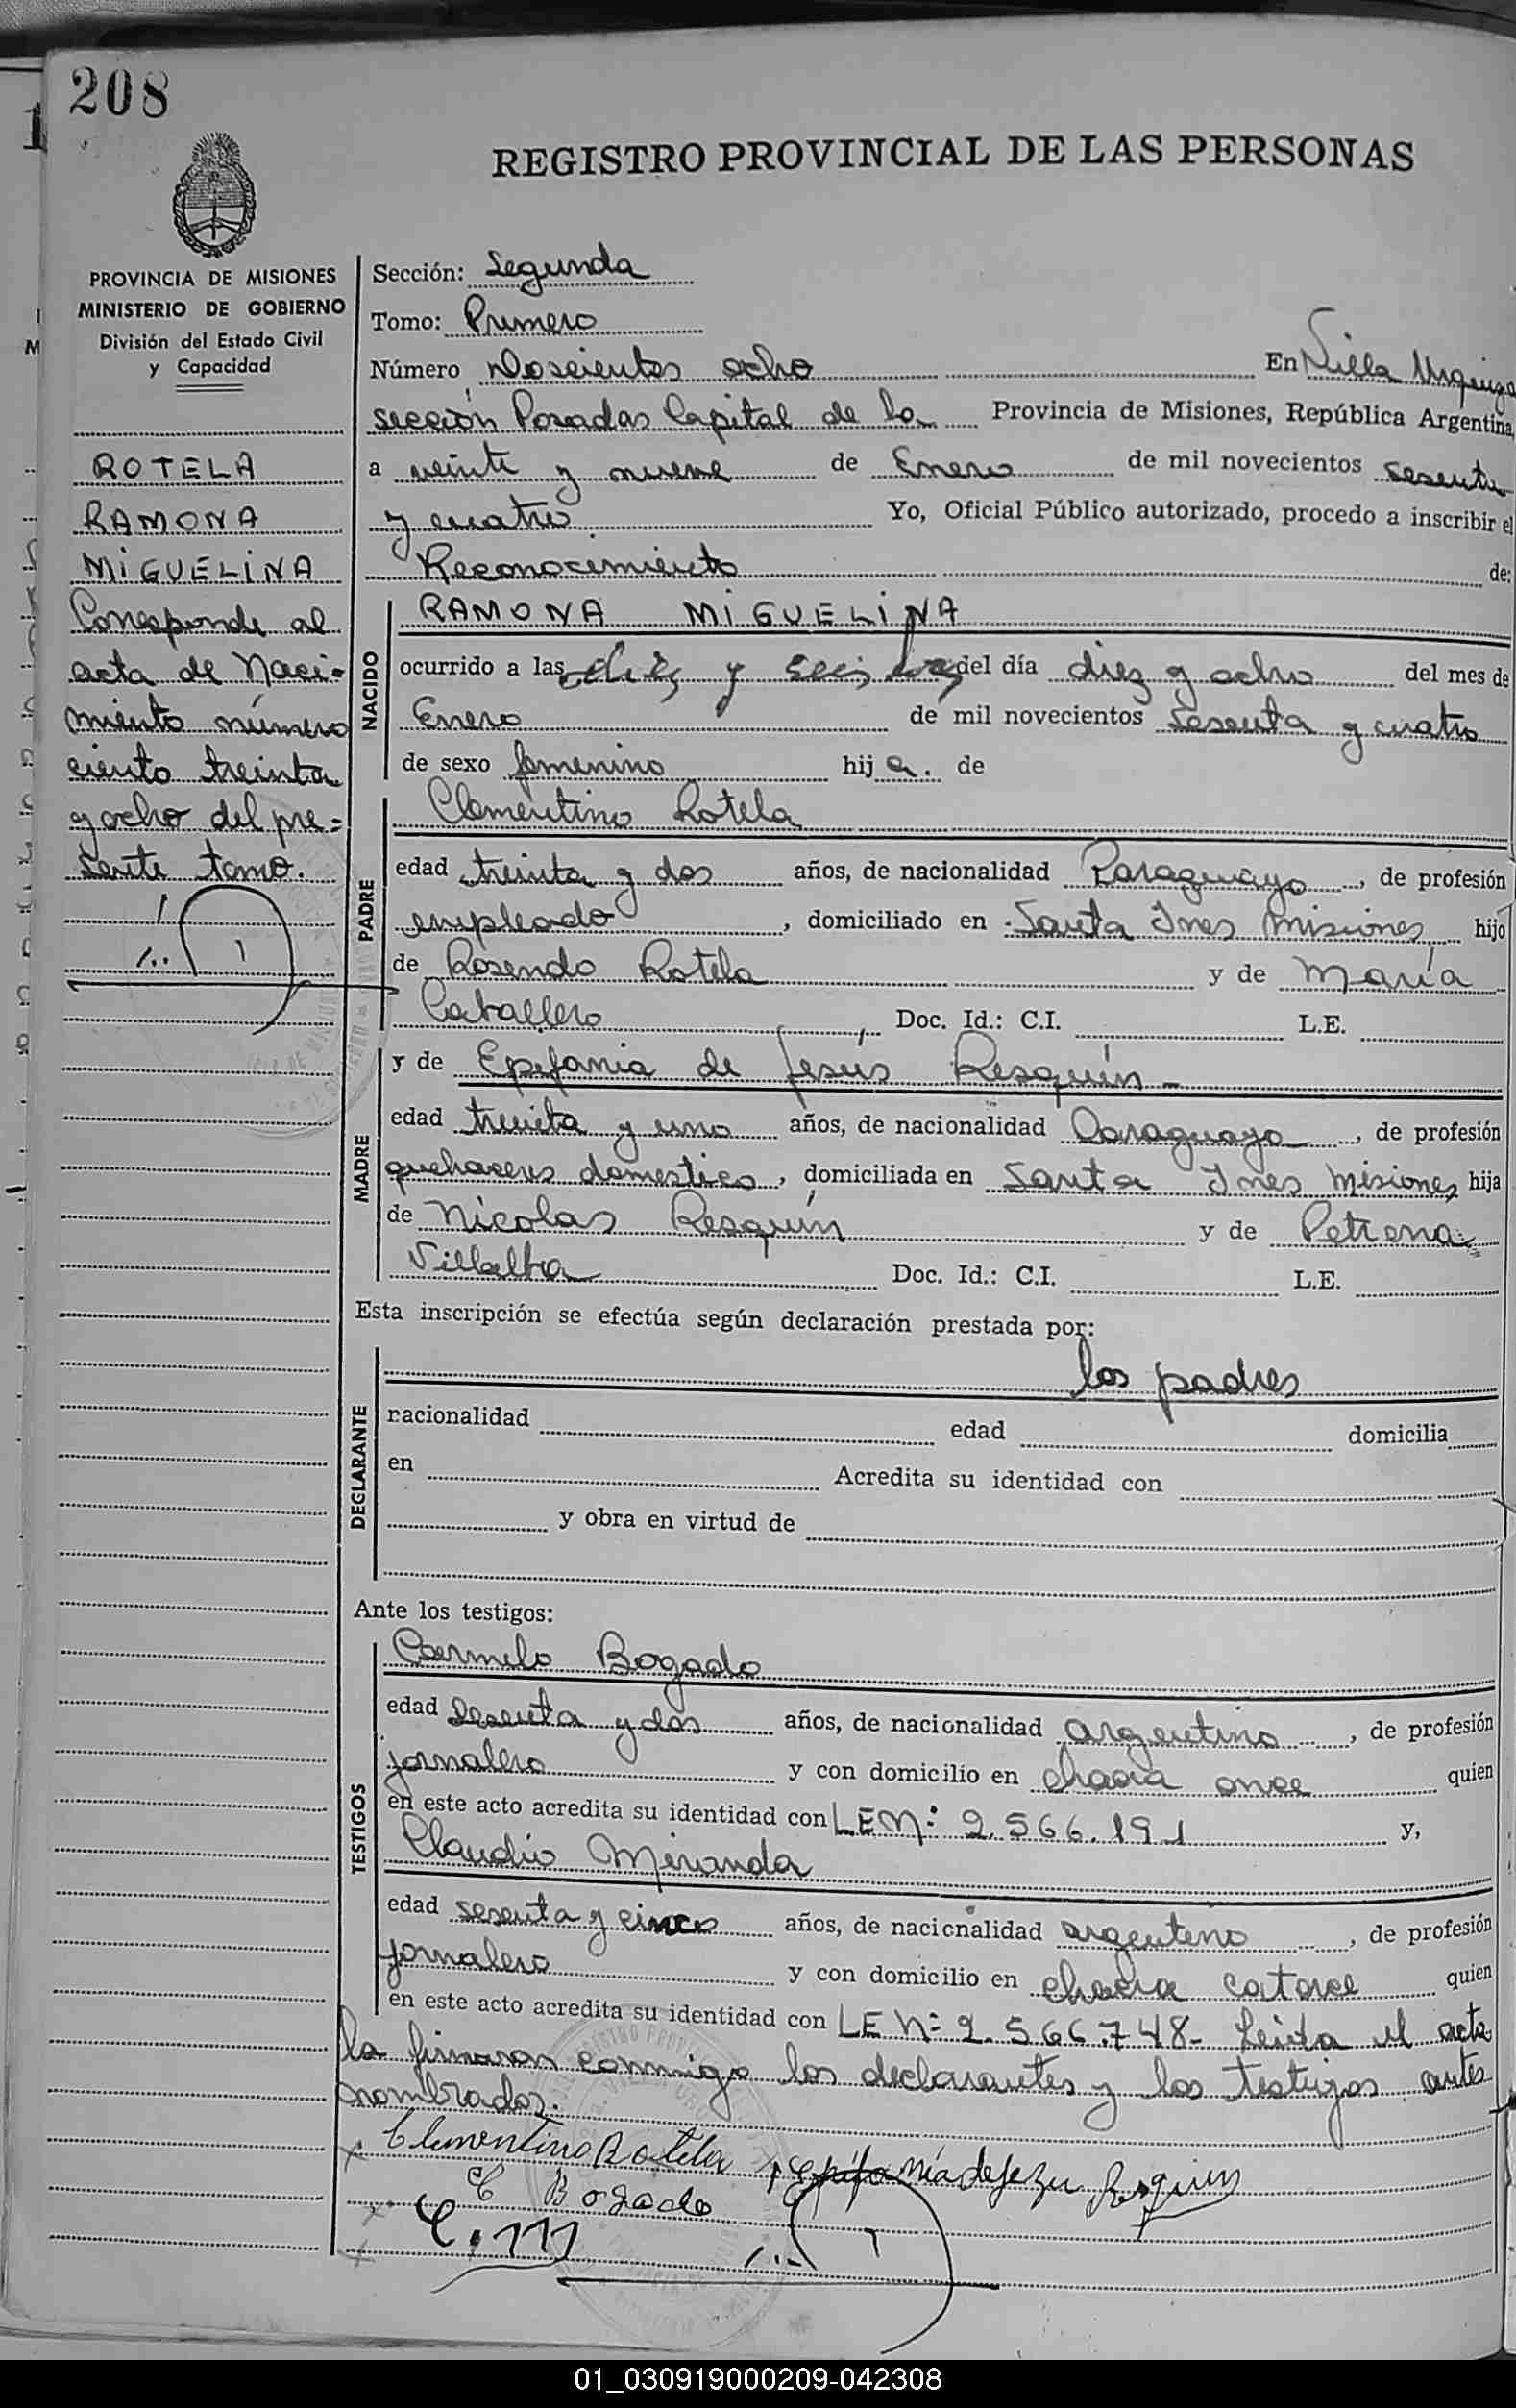 208
REGISTRO PROVINCIAL DE LAS PERSONAS
PROVINCIA DE MISIONES
MINISTERIO DE GOBIERNO
División del Estado Civil
y Capacidad
ROTELA
RAMONA
MIGUELINA
Corresponde al
acta de Naci-
miento número
ciento treinta
y ocho del pre=
sente tomo.
Sección: Segunda
Tomo: Primero
Número Doscientos ocho En Villa Urquiza
sección Posadas Capital de la Provincia de Misiones, República Argentina,
a veinte y nueve de Enero de mil novecientos sesenta
y cuatro Yo, Oficial Público autorizado, procedo a inscribir el
Reconocimiento de:
NACIDO
RAMONA MIGUELINA
ocurrido a las diez y seis hs del día diez y ocho del mes de
Enero de mil novecientos sesenta y cuatro
de sexo femenino hija. de
PADRE
Clementino Rotela
edad treinta y dos años, de nacionalidad Paraguayo, de profesión
empleado, domiciliado en Santa Ines Misiones, hijo
de Rosendo Rotela y de María
Caballero Doc. Id.: C.I. L.E.
MADRE
y de Epifania de Jesús Resquín -
edad treinta y uno años, de nacionalidad Paraguaya, de profesión
quehaceres domestico, domiciliada en Santa Ines Misiones, hija
de Nicolas Resquín y de Petrona
Villalba Doc. Id.: C.I. L.E.
Esta inscripción se efectúa según declaración prestada por:
DECLARANTE
los padres
nacionalidad edad domicilia
en Acredita su identidad con
y obra en virtud de
Ante los testigos:
TESTIGOS
Carmelo Bogado
edad sesenta y dos años, de nacionalidad argentino, de profesión
jornalero y con domicilio en chacra once quien
en este acto acredita su identidad con LEN: 2.566.191 y,
Claudio Miranda
edad sesenta y cinco años, de nacionalidad argentino, de profesión
jornalero y con domicilio en chacra catorce quien
en este acto acredita su identidad con LE N= 2.566.748- Leida el acta
la firmaron conmigo los declarantes y los testigos antes
nombrados.
Clementino Rotela Epifania de Jezu Resquin
C Bogado
01_030919000209-042308